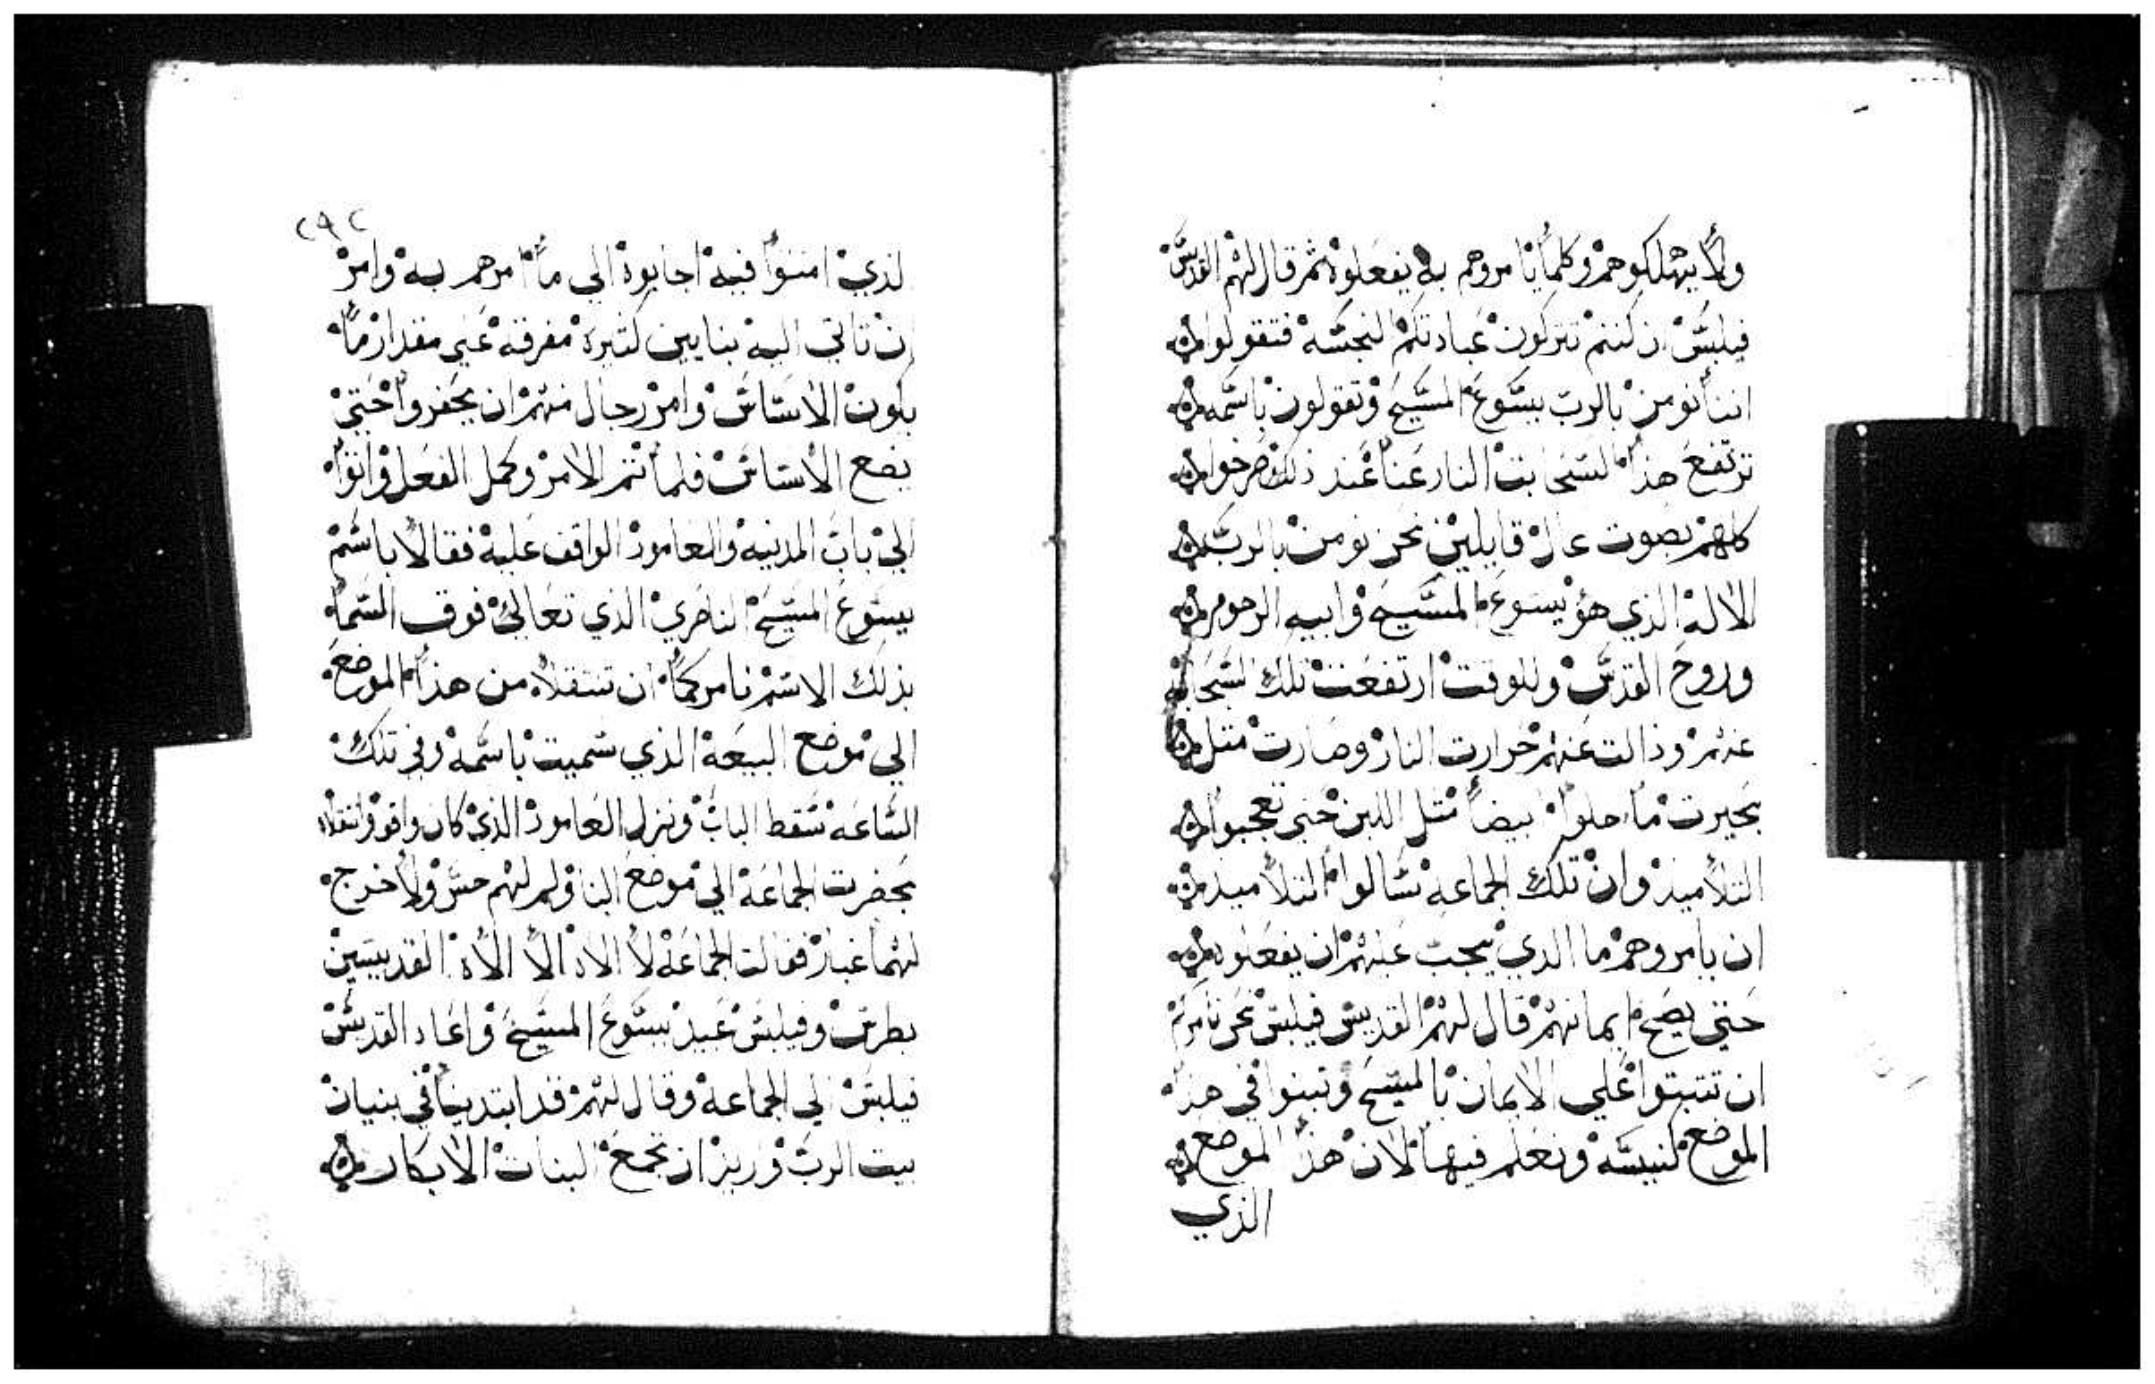 ولا يهلكوهم وكلما يامروهم به يفعلوه ثم قال لهم القدس
فيلبس ان كنتم تتركون عبادتكم النجسه فتقولوا
اننا نومن بالرب يسوع المسيح وتقولون باسمه
ترتفع هذا السحابت النار عنا عند ذلك صرخوا
كلهم بصوت عال قايلين نحن نومن بالرب
الاله الذي هو يسوع المسيح وابيه الرحوم
وروح القدس وللوقت ارتفعت تلك السحابه
عنهم وزالت عنهم حرارت النار وصارت متل
بحيرت ما حلوا بيضا متل اللبن حتي تعجبوا
التلاميذ وان تلك الجماعه سالوا التلاميد
ان يامروهم ما الدي يجب عليهم ان يفعلوه
حتي يصح ايمانهم قال لهم القديس فيلبس نحن نامركم
ان تتبتوا علي الايمان بالمسيح وتبنوا في هذا
الموضع كنيسه ونعلم فيها لان هذا الموضع
الذي
٢٩٢
لذي امنتوا فيه اجابوه الي ما امرهم به وامر
ان تاتي اليه بنايين كثيرة مفرقه علي مقدار ما
يكون الاساس وامر رجال منهم ان يحفروا حتي
يضع الاساس فلما تم الامر وكمل الفعل واتوا
الي باب المدينه والعامود الواقف عليه فقالا باسم
يسوع المسيح الناصري الذي تعالي فوق السما
بذلك الاسم نامركما ان تنتقلا من هذا الموضع
الي موضع البيعة الذي سميت باسمه وفي تلك
الساعه سقط الباب ونزل العامود الذي كان واقف وانتقلا
بحضرت الجماعة الي موضع البنا ولم لهم حس ولا خرج
لهما غبار فقالت الجماعة لا الاه الا الاه القديسين
بطرس وفيلبس عبيد يسوع المسيح واعاد القديس
فيلبس الي الجماعة وقال لهم قد ابتدينا في بنيان
بيت الرب ونريد ان نجمع البنات الابكار